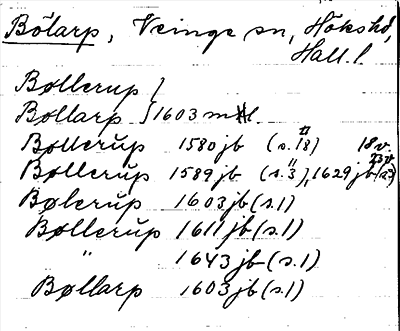 Bölarp, Veinge sn, Hökshd,
Hall. l.
Bøllerup }
Bollarp } 1603 mtl.
Bollerup 1580 jb (s. 18) 18 v.
Bøllerup 1589 jb (s. 3), 1629 jb
Bølerup 1603 jb (s. 1)
Bøllerup 1611 jb (s. 1)
" 1643 jb (s. 1)
Bøllarp 1603 jb (s. 1)